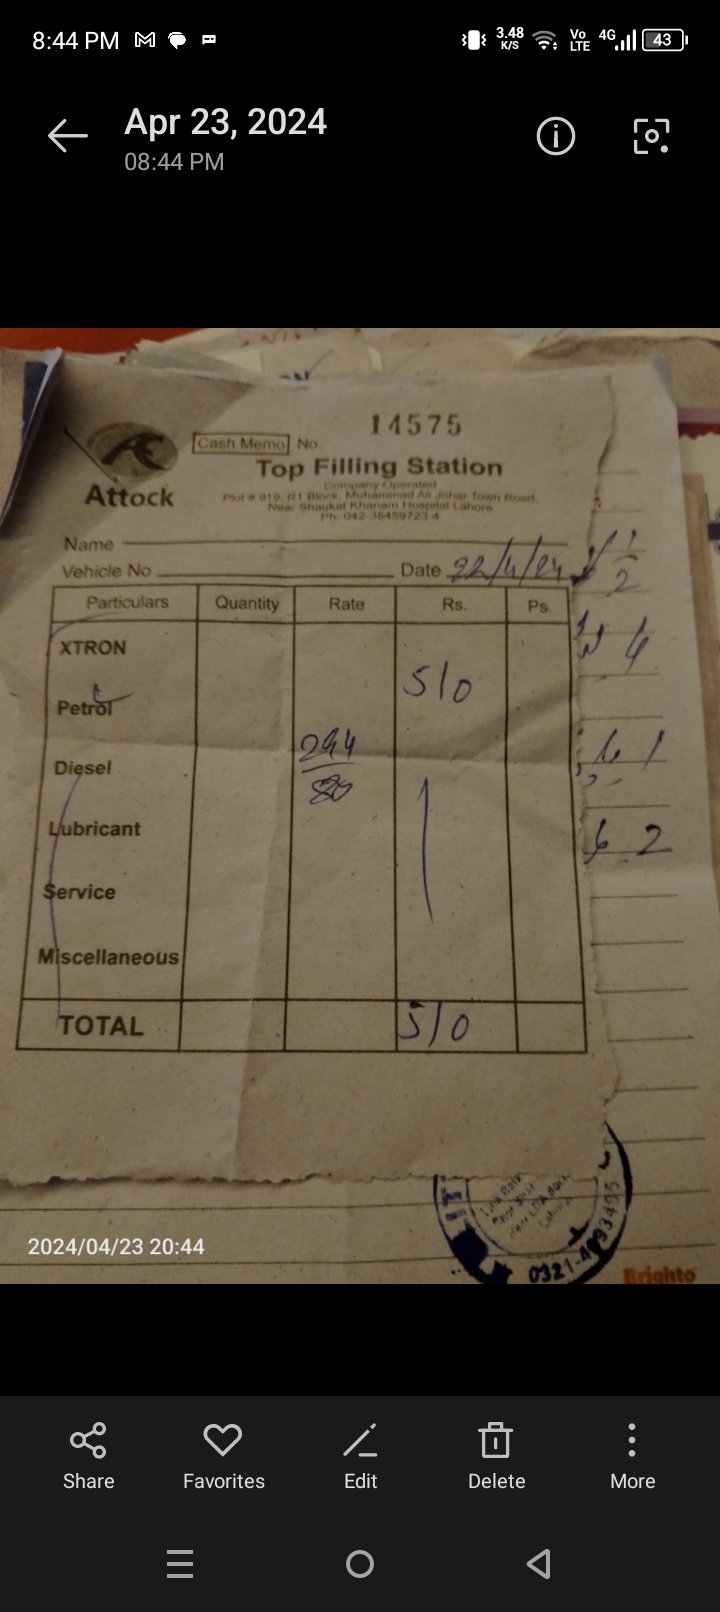 8:44 PM 3.48 K/S Vo LTE 4G 43
Apr 23, 2024
08:44 PM
14575
Cash Memo No.
Top Filling Station
Attock
Company Operated
Plot # 919, R1 Block, Muhammad Ali Johar Town Road,
Near Shaukat Khanam Hospital Lahore
Ph: 042-35459723-4
Name
Vehicle No Date 22/4/24
Particulars Quantity Rate Rs. Ps.
XTRON
510
Petrol
294
Diesel
80
Lubricant
62
Service
Miscellaneous
TOTAL 510
Lahore
Brighto
2024/04/23 20:44
Share Favorites Edit Delete More